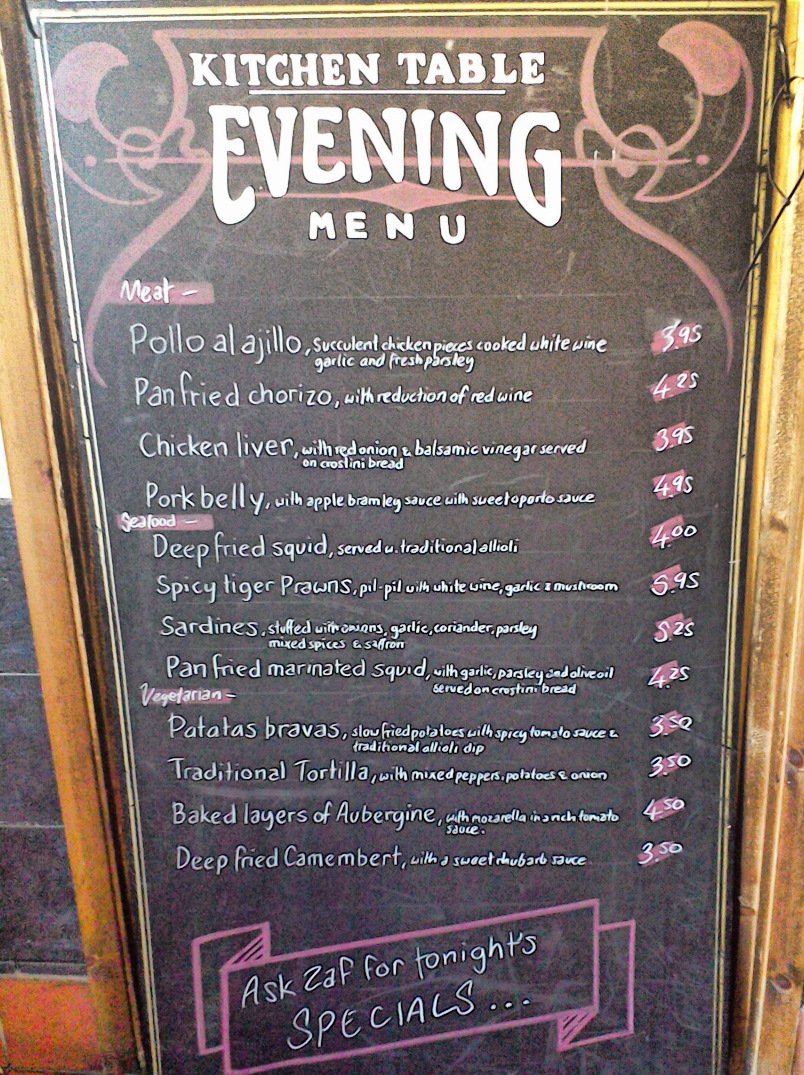 KITCHEN TABLE
EVENING
MENU
Meat -
Pollo al ajillo, Succulent chicken pieces cooked white wine 3.95
garlic and fresh parsley
Pan fried chorizo, with reduction of red wine 4.25
Chicken liver, with red onion & balsamic vinegar served 3.95
on crostini bread
Pork belly, with apple bramley sauce with sweet oporto sauce 4.95
Seafood -
Deep fried squid, served w. traditional allioli 4.00
Spicy tiger Prawns, pil-pil with white wine, garlic & mushroom 5.95
Sardines, stuffed with onions, garlic, coriander, parsley 5.25
mixed spices & saffron
Pan fried marinated squid, with garlic, parsley and olive oil 4.25
served on crostini bread
Vegetarian -
Patatas bravas, slow fried potatoes with spicy tomato sauce & 3.50
traditional allioli dip
Traditional Tortilla, with mixed peppers, potatoes & onion 3.50
Baked layers of Aubergine, with mozarella in a rich tomato 4.50
sauce.
Deep fried Camembert, with a sweet rhubarb sauce 3.50
Ask Zaf for tonight's
SPECIALS...